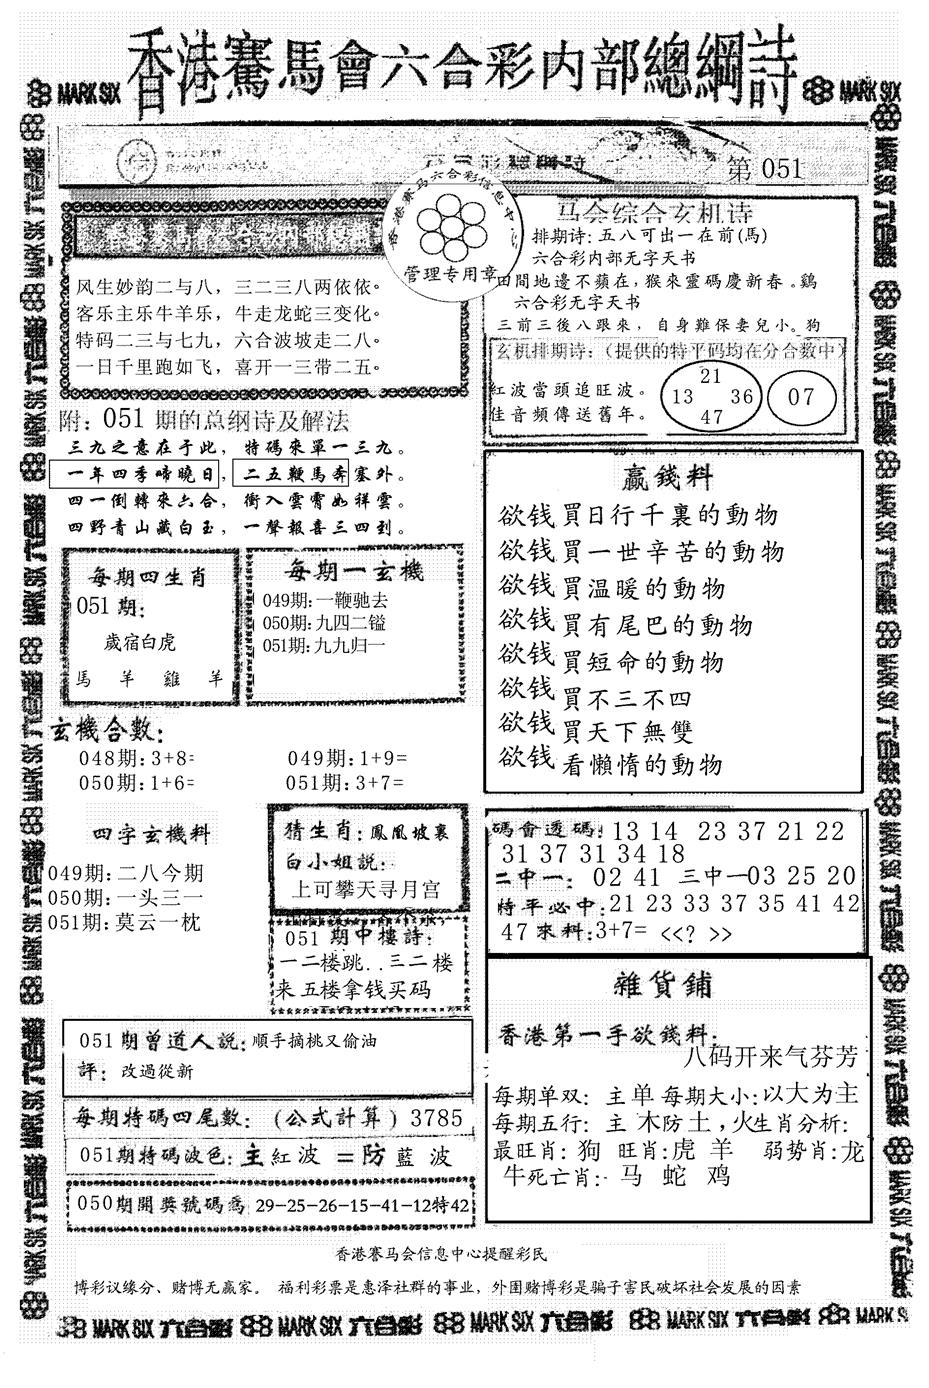 香港賽馬會六合彩内部總綱詩
MARK SIX
MARK SIX
第 051
香港赛马六合彩信息中
管理专用章
风生妙韵二与八，三二三八两依依。
客乐主乐牛羊乐，牛走龙蛇三变化。
特码二三与七九，六合波坡走二八。
一日千里跑如飞，喜开一三带二五。
附：051 期的总纲诗及解法
三九之意在于此，特碼來單一三九。
一年四季啼曉日，二五鞭馬奔塞外。
四一倒轉來六合，衝入雲霄如祥雲。
四野青山藏白玉，一聲報喜三四到。
每期四生肖
051 期：
歲宿白虎
馬 羊 雞 羊
每期一玄機
049期：一鞭驰去
050期：九四二镒
051期：九九归一
玄機合數：
048期：3+8= 049期：1+9=
050期：1+6= 051期：3+7=
四字玄機料
049期：二八今期
050期：一头三一
051期：莫云一枕
猜生肖：鳳凰坡裏
白小姐説：
上可攀天寻月宫
051 期中樓詩：
一二楼跳..三二楼
来五楼拿钱买码
051期曾道人説：順手摘桃又偷油
評：改過從新
每期特碼四尾數：（公式計算）3785
051期特碼波色：主紅波 =防藍波
050期開獎號碼爲 29-25-26-15-41-12特42
马会综合玄机诗
排期诗：五八可出一在前(馬)
六合彩内部无字天书
田間地邊不蘋在，猴來靈碼慶新春。鷄
六合彩无字天书
三前三後八跟來，自身難保妻兒小。狗
玄机排期诗：（提供的特平码均在分合数中）
紅波當頭追旺波。
佳音頻傳送舊年。
21
13 36
47
07
贏錢料
欲钱買日行千裏的動物
欲钱買一世辛苦的動物
欲钱買温暖的動物
欲钱買有尾巴的動物
欲钱買短命的動物
欲钱買不三不四
欲钱買天下無雙
欲钱看懶惰的動物
碼會透碼：13 14 23 37 21 22
31 37 31 34 18
二中一：02 41 三中一03 25 20
特平必中：21 23 33 37 35 41 42
47 來料：3+7= <<? >>
雜貨鋪
香港第一手欲錢料：
八码开来气芬芳
每期单双：主单 每期大小：以大为主
每期五行：主 木防土，火生肖分析：
最旺肖：狗 旺肖：虎 羊 弱势肖：龙
牛死亡肖：马 蛇 鸡
香港赛马会信息中心提醒彩民
博彩议缘分、赌博无赢家。 福利彩票是惠泽社群的事业，外围赌博彩是骗子害民破坏社会发展的因素
MARK SIX 六合彩 MARK SIX 六合彩 MARK SIX 六合彩 MARK SIX 六合彩 MARK SIX